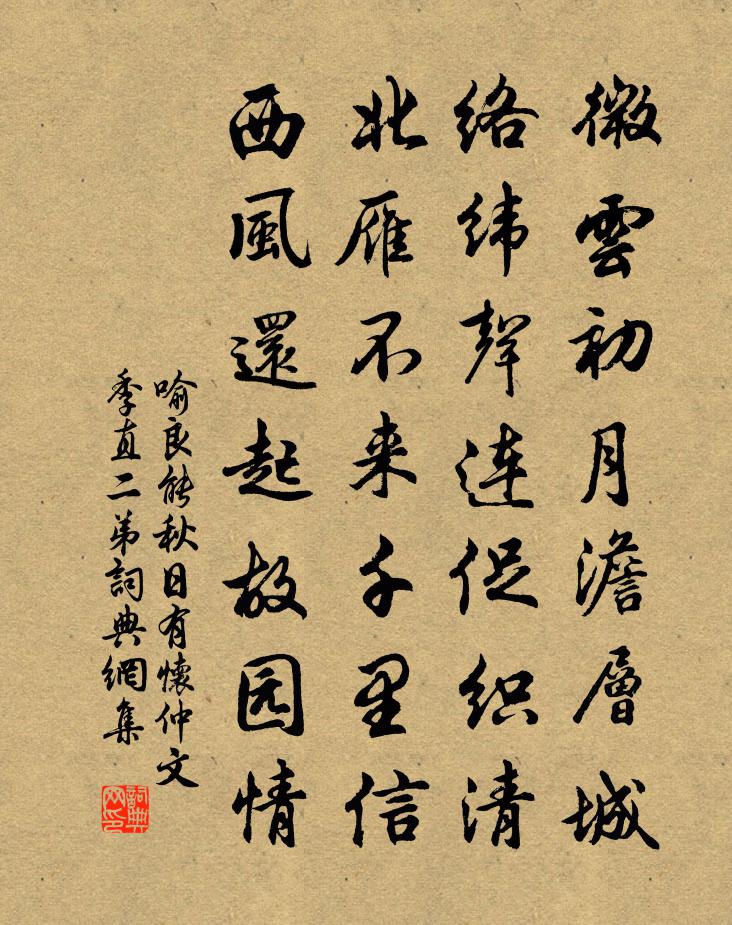 微雲初月澹層城
絡緯聲連促织清
北雁不来千里信
西風還起故园情
喻良能秋日有懷仲文
季直二弟詞典網集
詞典网印